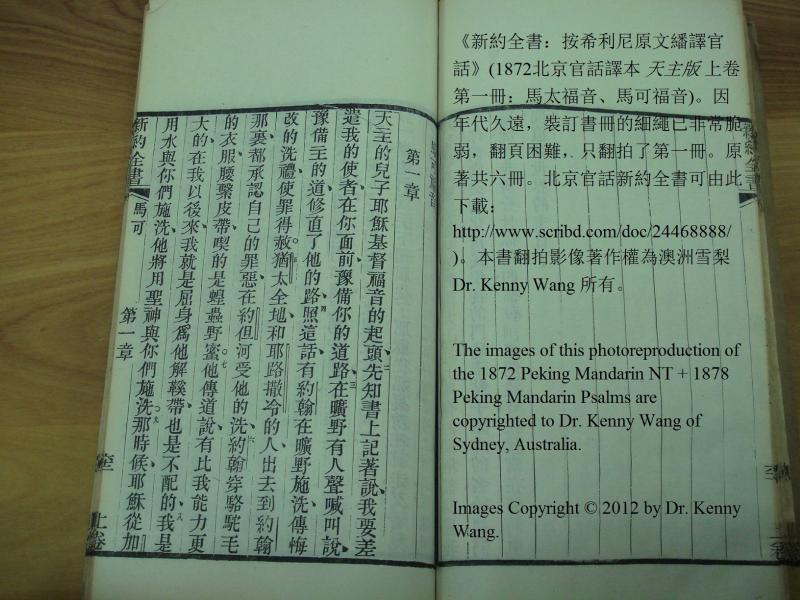 《新約全書：按希利尼原文繙譯官
話》(1872北京官話譯本 天主版 上卷
第一冊：馬太福音、馬可福音)。因
年代久遠，裝訂書冊的細繩已非常脆
弱，翻頁困難，只翻拍了第一冊。原
著共六冊。北京官話新約全書可由此
下載：
http://www.scribd.com/doc/24468888/
)。本書翻拍影像著作權為澳洲雪梨
Dr. Kenny Wang 所有。
The images of this photoreproduction of
the 1872 Peking Mandarin NT + 1878
Peking Mandarin Psalms are
copyrighted to Dr. Kenny Wang of
Sydney, Australia.
Images Copyright © 2012 by Dr. Kenny
Wang.
第一章
天主的兒子耶穌基督福音的起頭、先知書上記著說、我要差
遣我的使者在你面前、豫備你的道路、在曠野有人聲喊叫說、
豫備主的道、修直了他的路、照這話有約翰在曠野施洗、傳悔
改的洗禮、使罪得赦。猶太全地、和耶路撒冷的人、出去到約翰
那裏、都承認自己的罪惡、在約但河受他的洗、約翰穿駱駝毛
的衣服、腰繫皮帶、喫的是蝗蟲野蜜。他傳道說、有比我能力更
大的在我以後來、我就是屈身爲他解鞵帶、也是不配的、我是
用水與你們施洗、他將用聖神與你們施洗。那時候、耶穌從加
新約全書 馬可 第一章 上卷